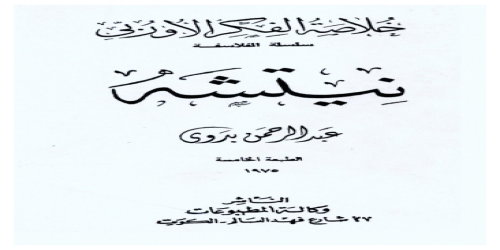 خلاصة الفكر الأوربي
سلسلة الفلاسفة
نيتشه
عبد الرحمن بدوى
الطبعة الخامسة
١٩٧٥
الناشر
وكالة المطبوعات
٢٧ شارع فهد السالم - الكويت